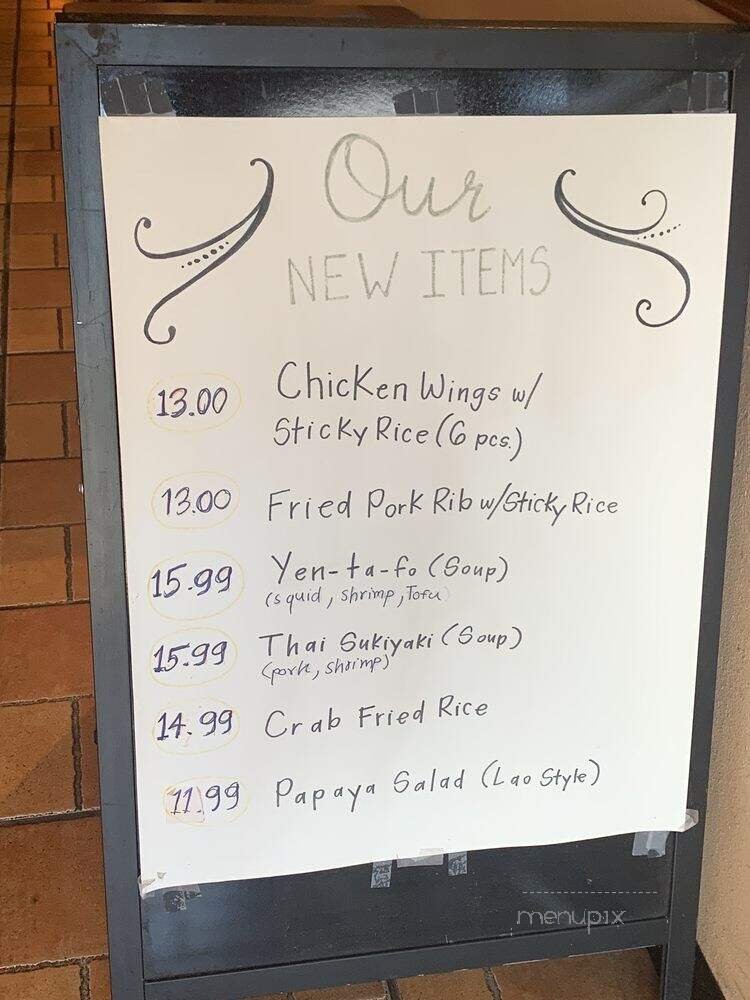 Our
NEW ITEMS
13.00 Chicken Wings w/
Sticky Rice (6 pcs.)
13.00 Fried Pork Rib w/Sticky Rice
15.99 Yen-ta-fo (Soup)
(squid, shrimp, Tofu)
15.99 Thai Sukiyaki (Soup)
(pork, shrimp)
14.99 Crab Fried Rice
11.99 Papaya Salad (Lao Style)
menupix